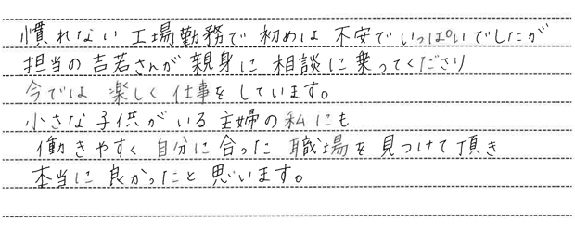 慣れない工場勤務で初めは不安でいっぱいでしたが
担当の吉若さんが親身に相談に乗ってくださり
今では楽しく仕事をしています。
小さな子供がいる主婦の私にも
働きやすく自分に合った職場を見つけて頂き
本当に良かったと思います。